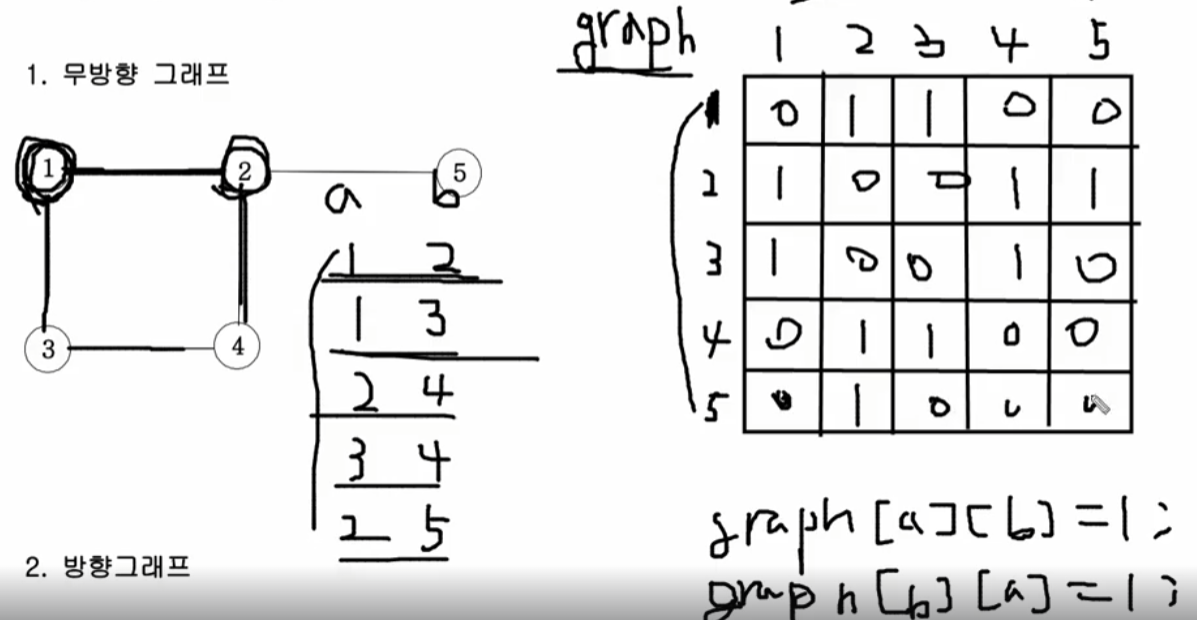 1. 무방향 그래프
1 2 5
3 4
a b
1 2
1 3
2 4
3 4
2 5
2. 방향그래프
graph
1 2 3 4 5
1 0 1 1 0 0
2 1 0 0 1 1
3 1 0 0 1 0
4 0 1 1 0 0
5 0 1 0 0 0
graph[a][b]=1;
graph[b][a]=1;